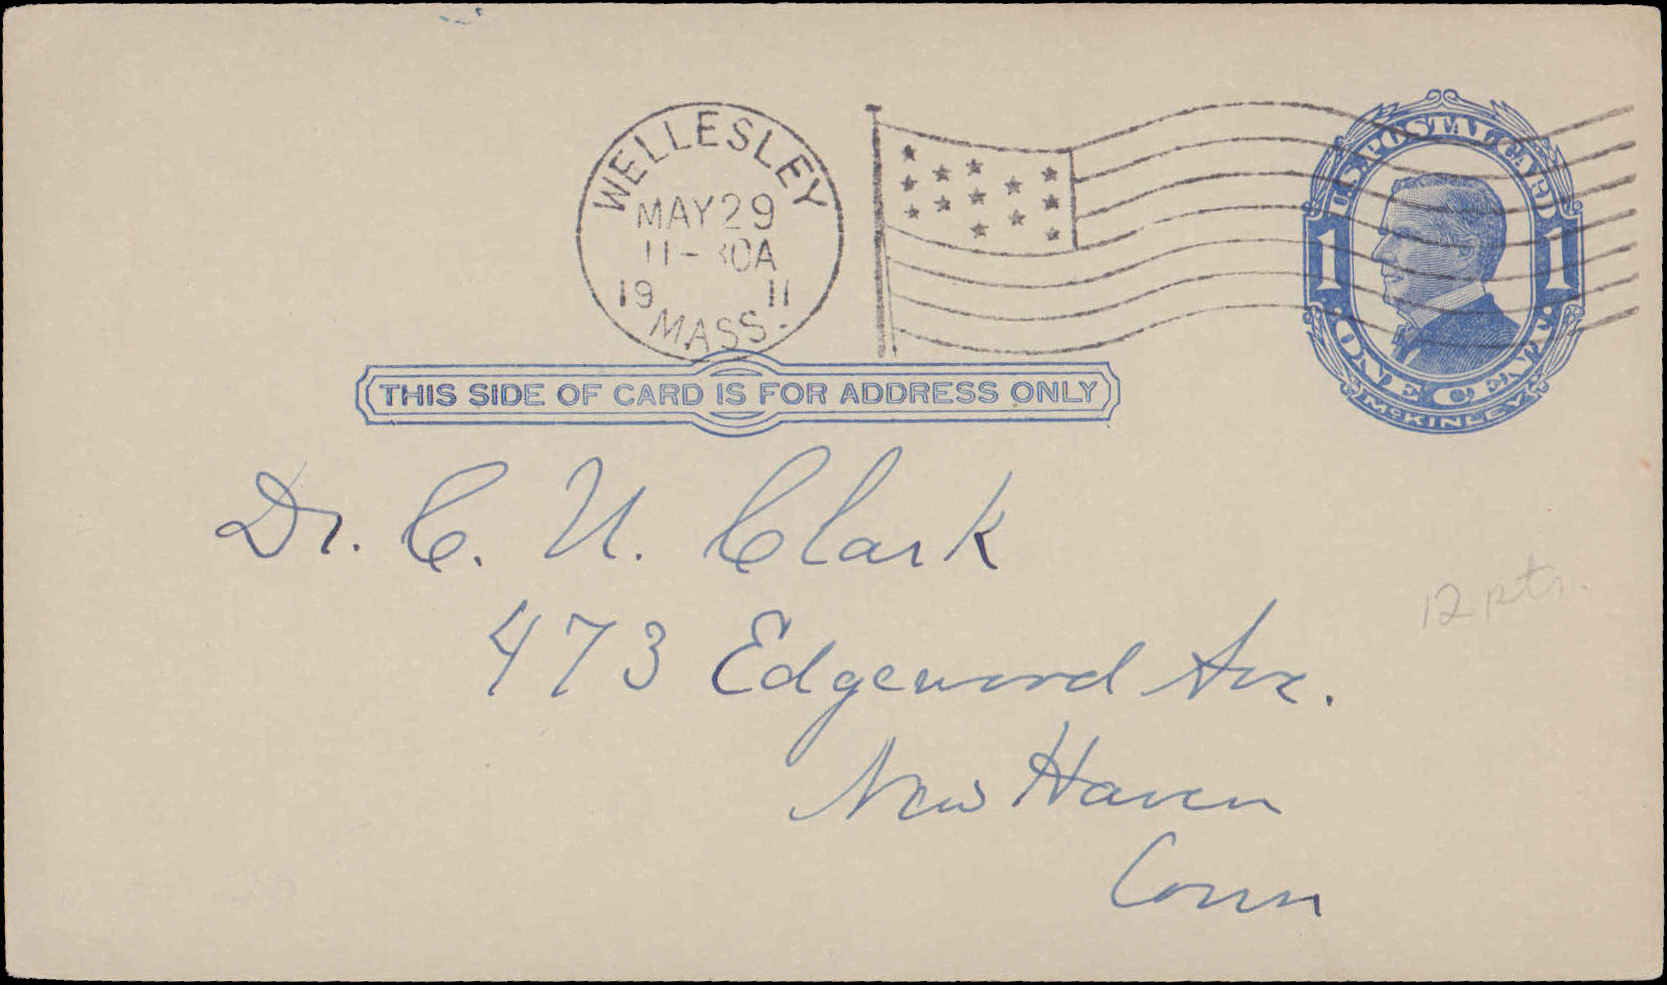 WELLESLEY
MAY 29
11-30A
19 11
MASS.
U.S. POSTAL CARD
1 1
ONE CENT
McKINLEY
THIS SIDE OF CARD IS FOR ADDRESS ONLY
Dr. C. U. Clark
473 Edgewood Ave.
12 pts.
New Haven
Conn